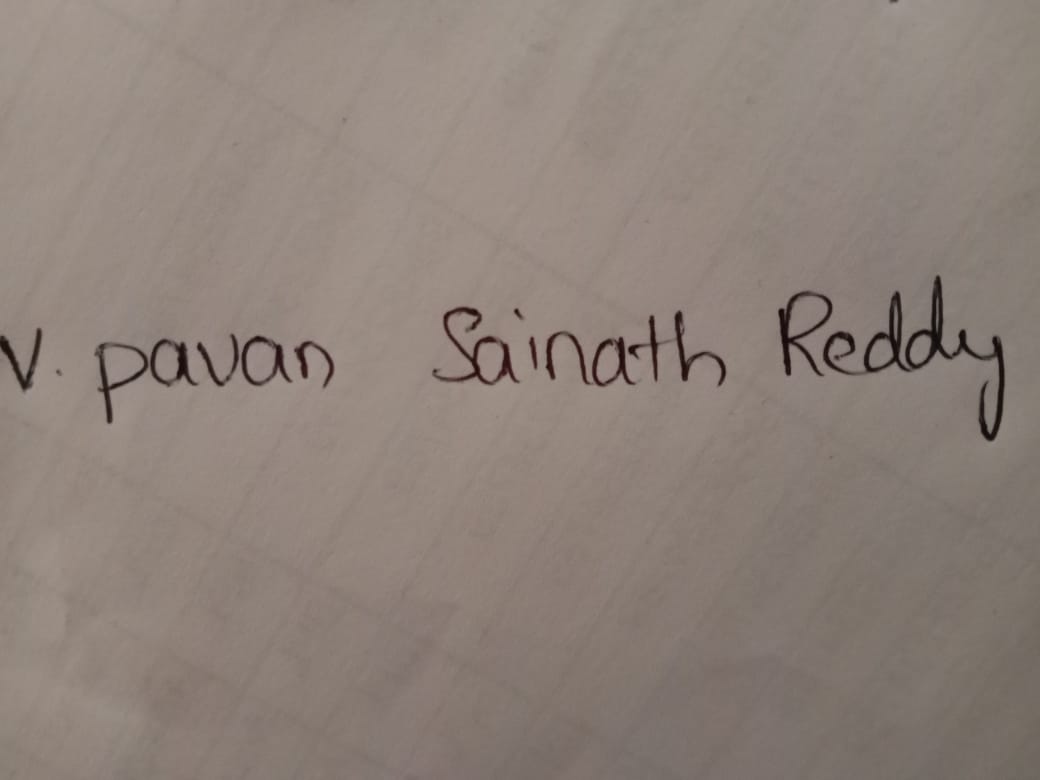 V. pavan Sainath Reddy